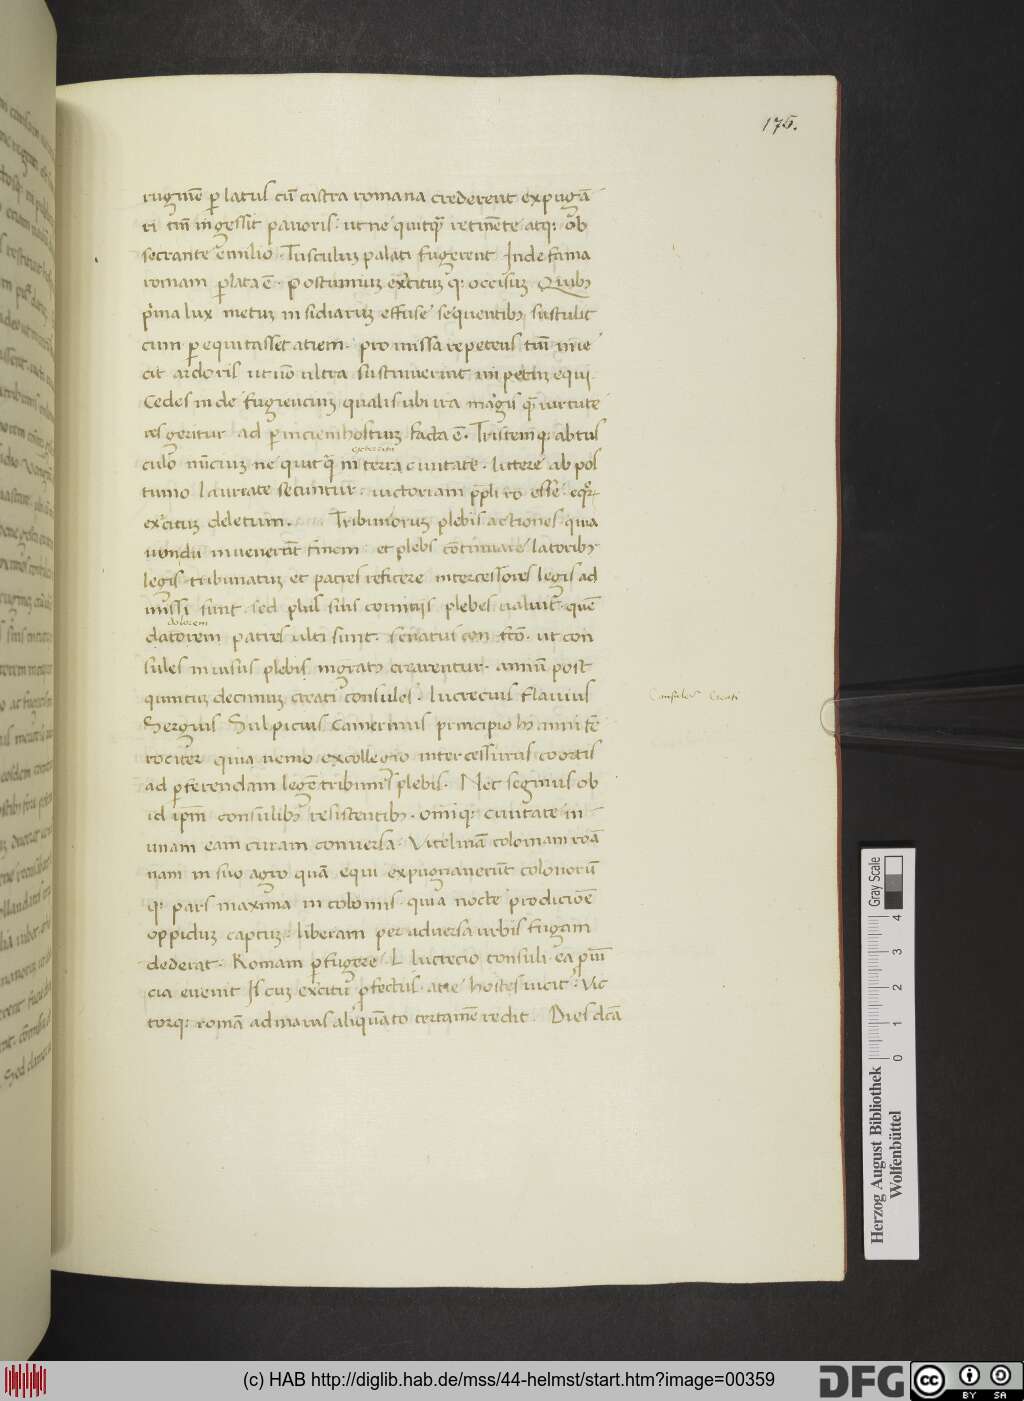 175.
rugine ꝑ latus cū castra romana crederent expugā
ri tm̄ ingessit pauoris · ut ne quitq̄ retinēte atq; ob
secrante emilio · Tusculum palati fugerent Inde fama
romam ꝑlata ē · postumium exercitum q; occisum Quibꝫ
prima lux metum insidiarum effuse sequentibꝫ sustulit
cum ꝑ equitasset atiem · promissa repetens tm̄ inie
cit ardoris ut nō ultra sustinuerint impetum equi ·
Cedes inde fugiencium qualis ubi ira magis q̄ uirtute
res geritur ad ꝑniciem hostium facta ē · Tristemq; ab tus
exterriti
culo nūcium ne quitq̄ in terra ciuitate · littere ab pos
tumo laureate secuntur · uictoriam ppl̄i ro esse · equor
exercitum deletum · Tribunorum plebis actiones quia
nondū inuenerāt finem · et plebs cōtinuare latoribꝫ
legis tribunatum et patres reficere intercessores legis ad
nissi sunt sed plus suis comitijs plebes ualuit · quē
dolorem
datorem patres ulti sunt · senatui con ſto · ut con
sules inuisus plebis ingratꝫ crearentur · annū post
quintum decimum creati consules · lucrecius flauius
Consules Creati
Sergius Sulpicius Camerinus principio hꝫ anni fe
rociter quia nemo ex collegio intercessurus coortis
ad ꝑferendam legē tribunis plebis · Nec segnius ob
id ipm̄ consulibꝫ resistentibꝫ · omīq; ciuitate in
unam eam curam conuersa · Vitelinā coloniam roā
nam in suo agro quā equi expugnauerūt colonorū
q; pars maxima in colomis · quia nocte prodicioē
oppidum captum · liberam per aduersa urbis fugam
dederat · Romam ꝑfugere · L lucrecio consuli · ea prouī
cia euenit Is cum exercitu profectus · atie hostes uicit · Vic
torq; romā ad maras aliquāto certamē redit · Dies dcā
Herzog August Bibliothek
Wolfenbüttel
0 1 2 3 4
Gray Scale
(c) HAB http://diglib.hab.de/mss/44-helmst/start.htm?image=00359
DFG
cc BY SA